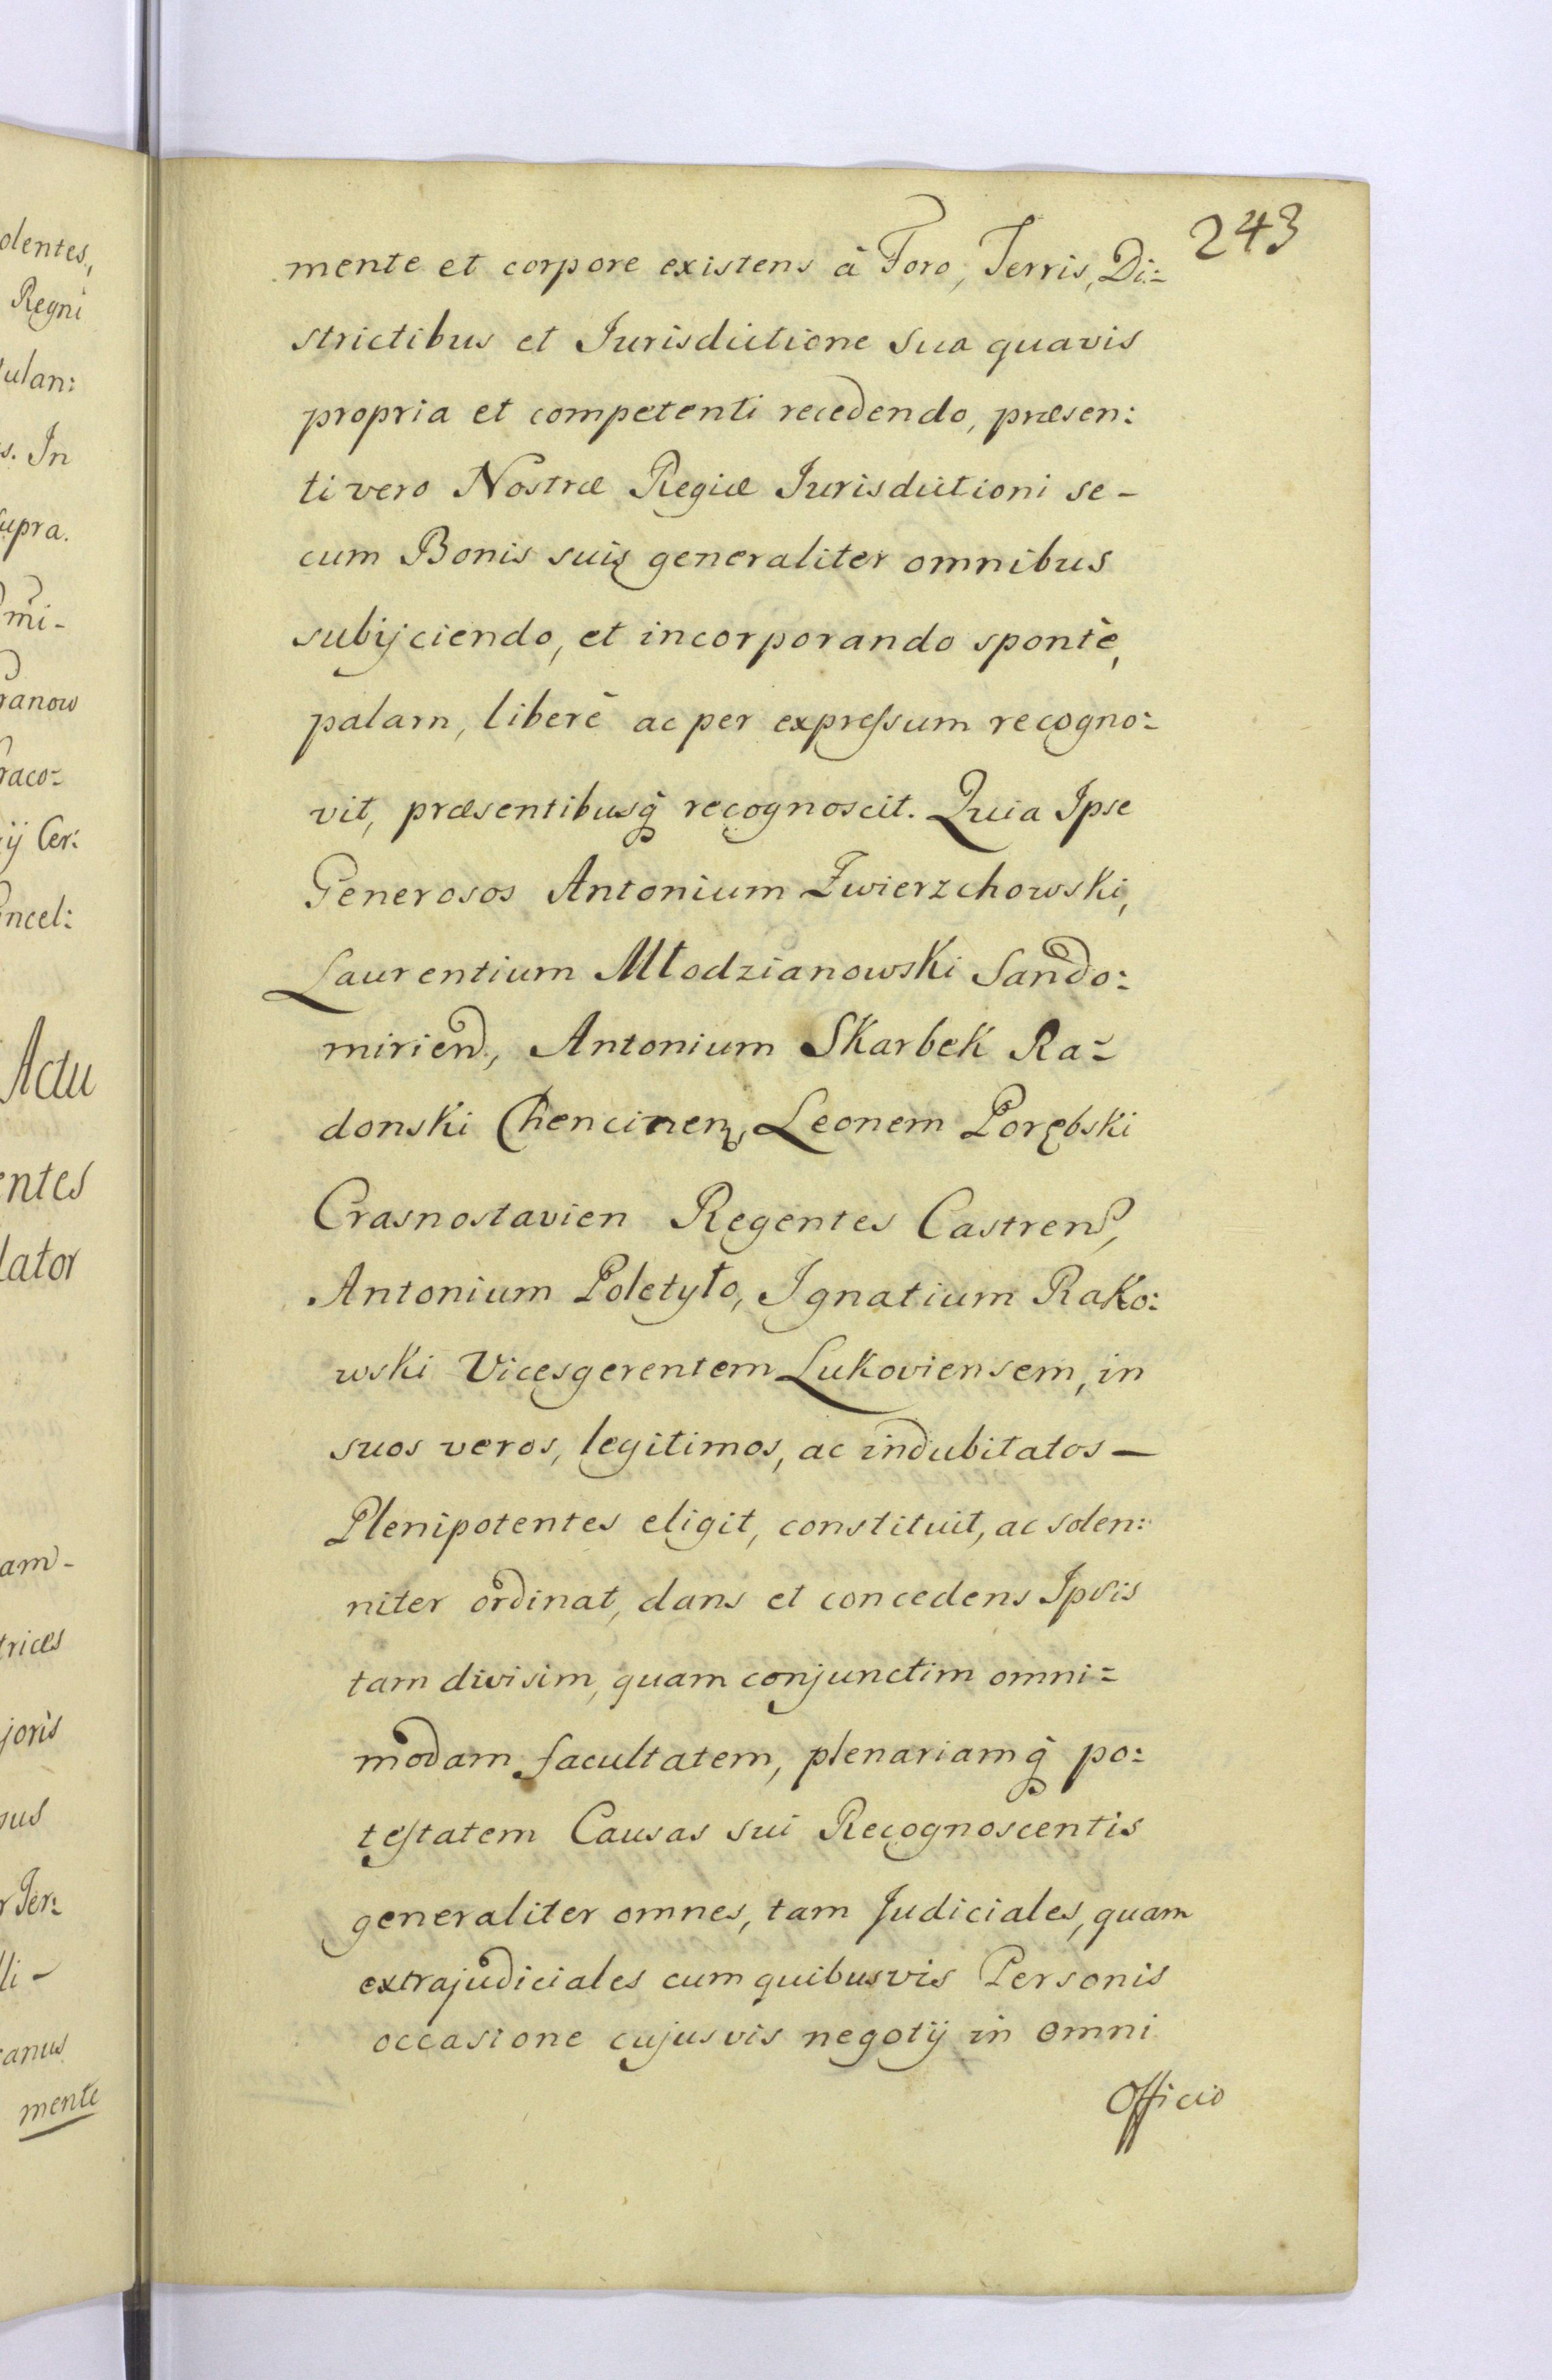 243
mente et corpore existens à Foro, Terris, Di=
strictibus et Iurisdictione sua quavis
propria et competenti recedendo, præsen:
ti vero Nostræ Regiæ Iurisdictioni se-
cum Bonis suis generaliter omnibus
subijciendo, et incorporando spontè,
palam, liberè ac per expressum recogno=
vit, præsentibusq̃ recognoscit. Quia Ipse
Generosos Antonium Zwierzchowski,
Laurentium Młodzianowski Sando:
mirien, Antonium Skarbek Ra=
donski Chencinen, Leonem Porębski
Crasnostavien Regentes Castrens,
Antonium Poletyło, Ignatium Rako:
wski Vicesgerentem Lukoviensem, in
suos veros, legitimos, ac indubitatos —
Plenipotentes eligit, constituit, ac solen:
niter ordinat, dans et concedens Ipsis
tam divisim, quam conjunctim omni=
modam facultatem, plenariamq̃ po:
testatem Causas sui Recognoscentis
generaliter omnes, tam Judiciales, quam
extrajudiciales cum quibusvis Personis
occasione cujusvis negotij in omni
Officio
olentes,
Regni
ulan:
s. In
supra.
mi-
ranow
raco=
ij Cer:
ncel:
Actu
entes
lator
am-
trices
joris
pus
r Ter:
li -
canus
mente